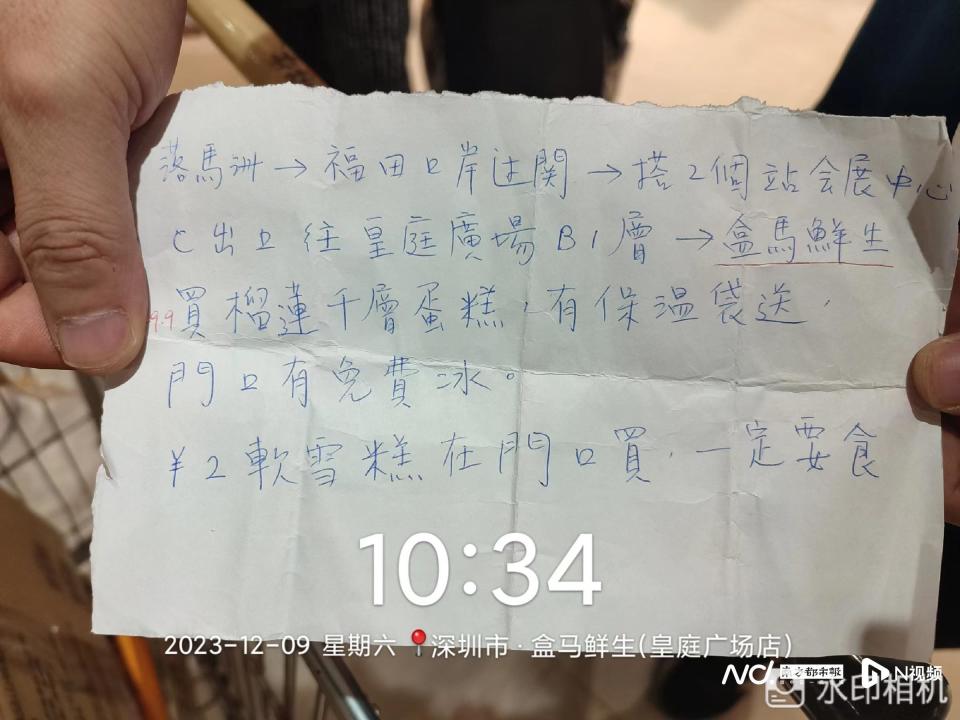 落馬洲→福田口岸过關→搭2個站会展中心
C出口往皇庭廣場B1層→盒馬鮮生
9.9買榴蓮千層蛋糕，有保溫袋送，
門口有免費冰。
¥2軟雪糕在門口買，一定要食
10:34
2023-12-09 星期六 深圳市·盒马鲜生(皇庭广场店)
nd 南方都市报 N视频
水印相机